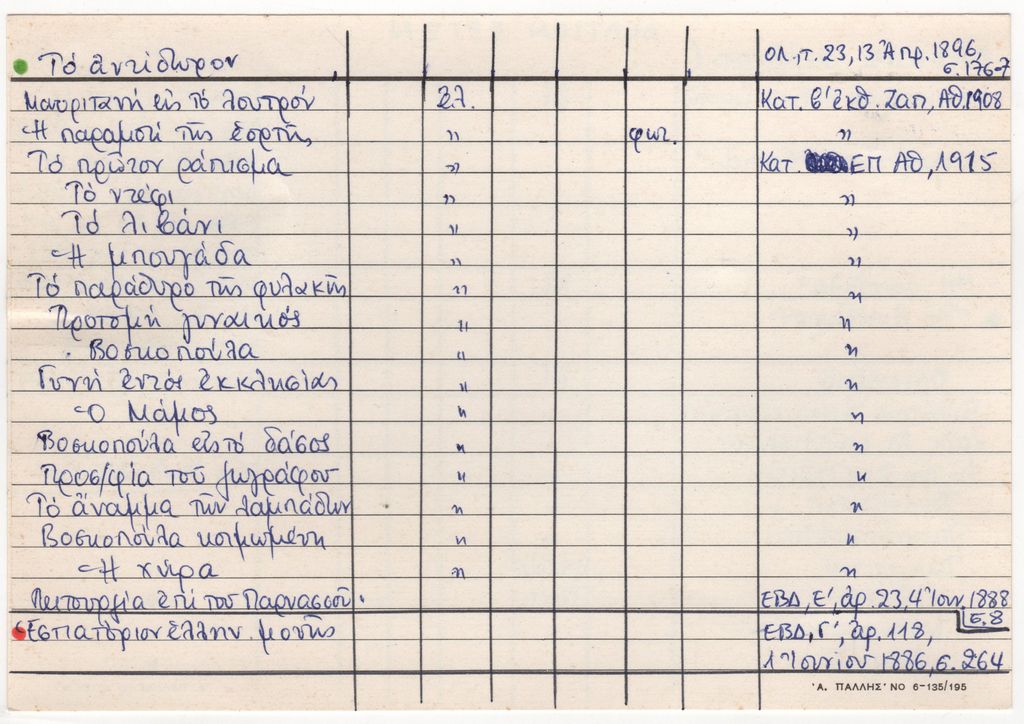 Τό ἀντίδωρον ΟΛ., τ. 23, 13 Ἀπρ. 1896, σ. 176-7
Μαυριτανή εἰς τό λουτρόν ἐλ. Κατ. β' ἐκθ. Ζαπ., Ἀθ. 1908
Ἡ παραμονή τῆς ἑορτῆς " φωτ. "
Τό πρῶτον ράπισμα " Κατ. ΕΠ Ἀθ, 1915
Τό ντέφι " "
Τό λιβάνι " "
Ἡ μπουγάδα " "
Τό παράθυρο τῆς φυλακῆς " "
Προτομή γυναικός " "
Βοσκοπούλα " "
Γυνή ἐντός ἐκκλησίας " "
Ὁ Μάμος " "
Βοσκοπούλα εἰς τό δάσος " "
Προσ/φία τοῦ ζωγράφου " "
Τό ἄναμμα τῶν λαμπάδων " "
Βοσκοπούλα κοιμωμένη " "
Ἡ χήρα " "
Λειτουργία ἐπί τοῦ Παρνασσοῦ. ΕΒΔ, Ε', ἀρ. 23, 4 Ἰουν. 1888 σ. 8
Ἑστιατόριον ἑλλην. μονῆς ΕΒΔ, Γ', ἀρ. 118,
1 Ἰουνίου 1886, σ. 264
'Α. ΠΑΛΛΗΣ' ΝΟ 6-135/195